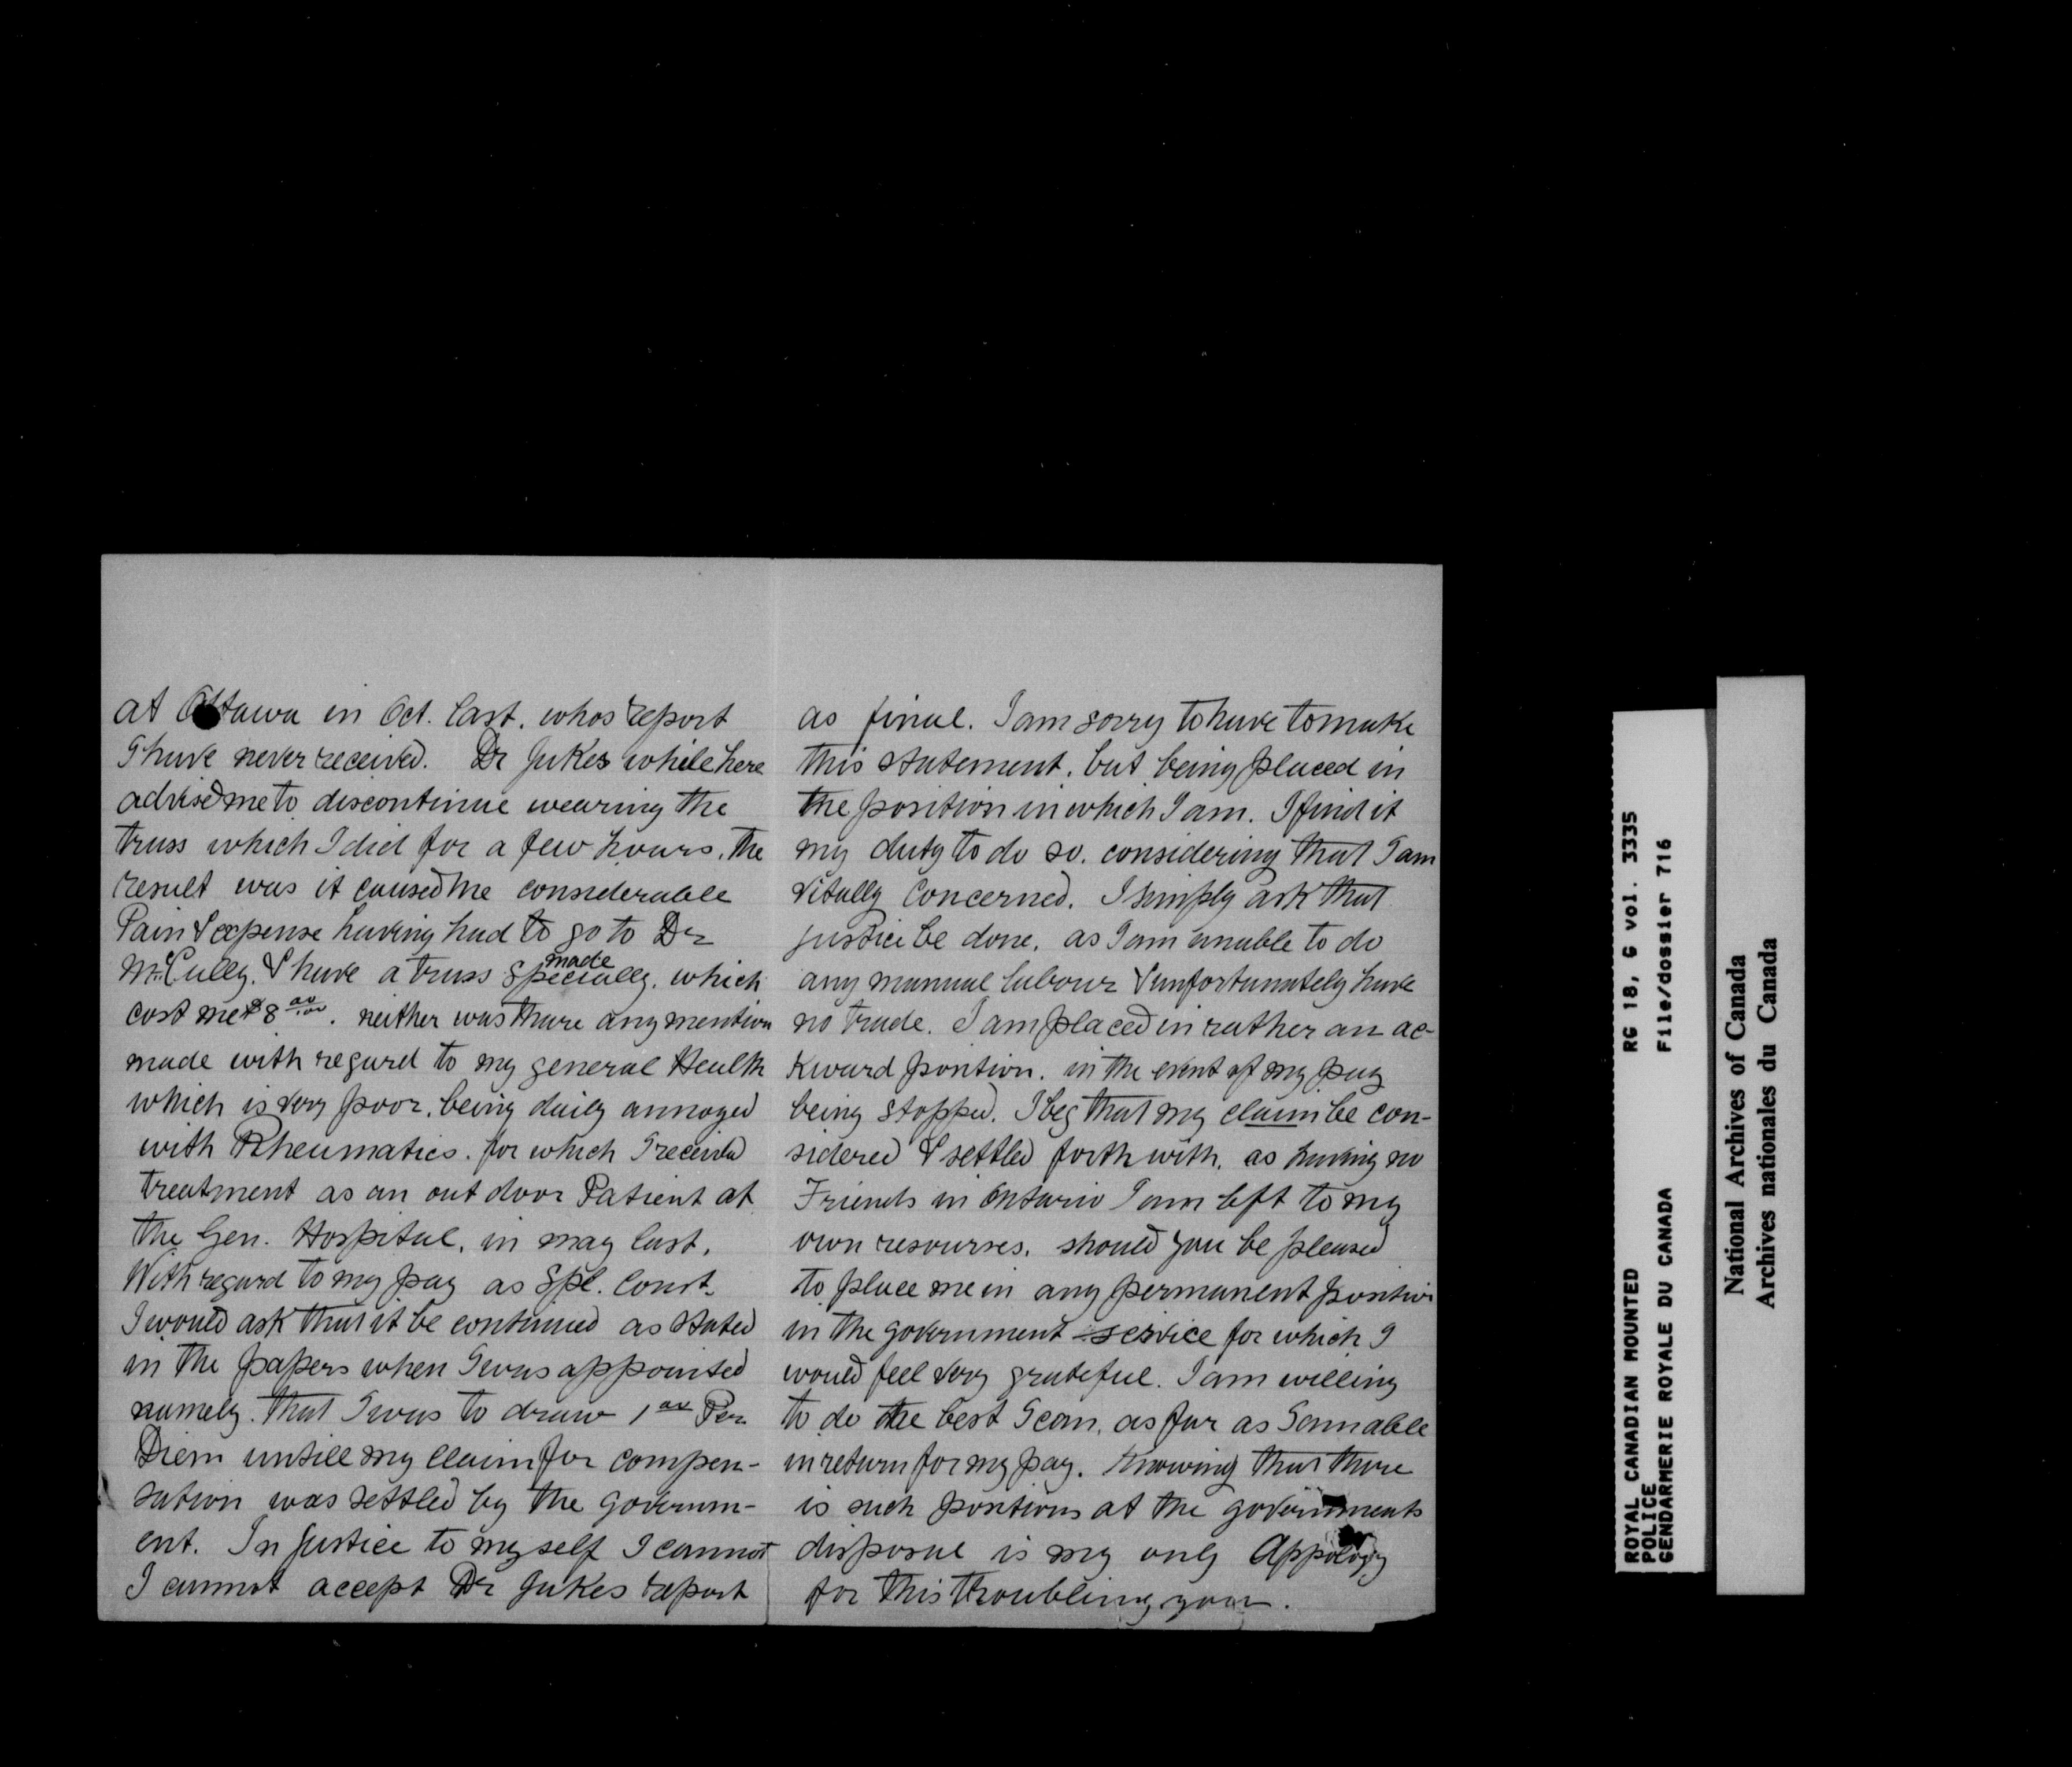 at Ottawa in Oct. last. whos report
I have never received. Dr Jukes while here
advised me to discontinue wearing the
truss which I did for a few hours. The
result was it caused me considerable
Pain & expense having had to go to Dr
McCully. & have a truss specially made. which
cost me $8 00/100. neither was thare any mention
made with regard to my general Health
which is very poor. being daily annoyed
with Rheumatics. for which I received
treatment as an out door Patient at
the Gen. Hospital. in may last.
With regard to my pay as Spl. Const.
I would ask that it be continued as stated
in the papers when I was appointed
namely. that I was to draw 1 00 Per
Diem untill my claim for compen-
sation was settled by the governm-
ent. In Justice to myself I cannot
I cannot accept Dr Jukes report
as final. I am sorry to have to make
this statement. but being placed in
the position in which I am. I find it
my duty to do so. considering that I am
vitally concerned. I simply ask that
justice be done. as I am unable to do
any manual labour & unfortunately have
no trade. I am placed in rather an ac-
kward position. in the event of my pay
being stopped. I beg that my claim be con-
sidered & settled forthwith. as having no
Friends in Ontario I am left to my
own resourses. should you be pleased
to place me in any permanent position
in the government service for which I
would feel very grateful. I am willing
to do the best I can. as far as I am able
in return for my pay. Knowing that thare
is such positions at the governments
disposal is my only Appology
for this troubling you.
ROYAL CANADIAN MOUNTED
POLICE
GENDARMERIE ROYALE DU CANADA
RG 18, G vol. 3335
File/dossier 716
National Archives of Canada
Archives nationales du Canada